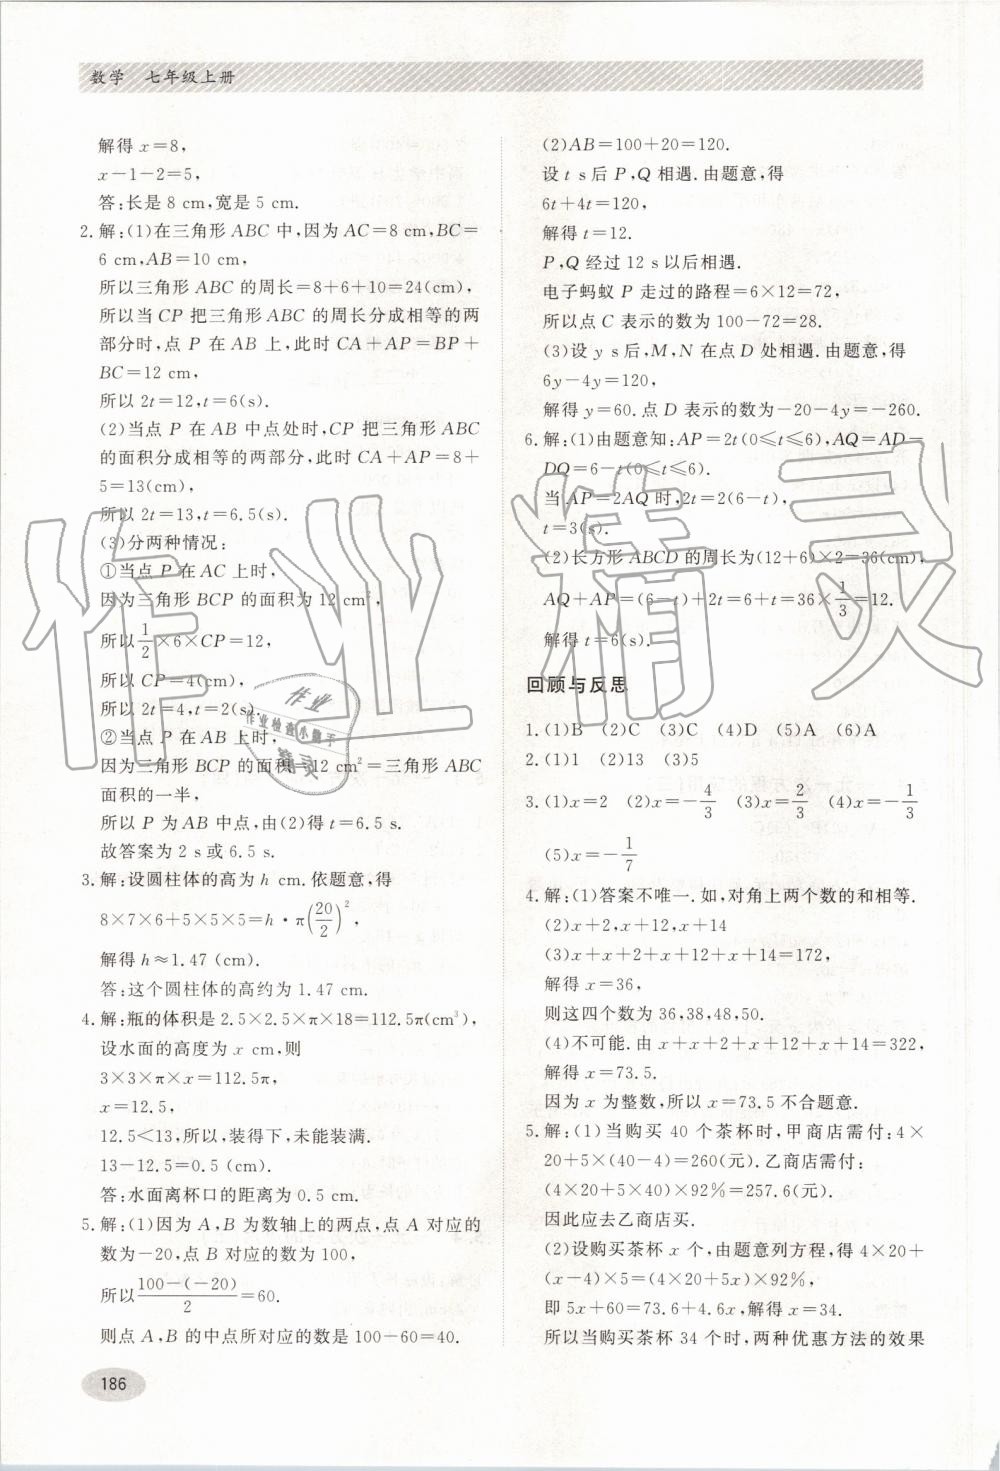 数学 七年级上册
解得 x=8,
x-1-2=5,
答:长是 8 cm,宽是 5 cm.
2. 解:(1)在三角形 ABC 中,因为 AC=8 cm,BC=
6 cm,AB=10 cm,
所以三角形 ABC 的周长=8+6+10=24(cm),
所以当 CP 把三角形 ABC 的周长分成相等的两
部分时,点 P 在 AB 上,此时 CA+AP=BP+
BC=12 cm,
所以 2t=12,t=6(s).
(2)当点 P 在 AB 中点处时,CP 把三角形 ABC
的面积分成相等的两部分,此时 CA+AP=8+
5=13(cm),
所以 2t=13,t=6.5(s).
(3)分两种情况:
①当点 P 在 AC 上时,
因为三角形 BCP 的面积为 12 cm²,
所以 1/2×6×CP=12,
所以 CP=4(cm),
所以 2t=4,t=2(s).
②当点 P 在 AB 上时,
因为三角形 BCP 的面积=12 cm²=三角形 ABC
面积的一半,
所以 P 为 AB 中点,由(2)得 t=6.5 s.
故答案为 2 s或 6.5 s.
3. 解:设圆柱体的高为 h cm.依题意,得
8×7×6+5×5×5=h·π(20/2)²,
解得 h≈1.47 (cm).
答:这个圆柱体的高约为 1.47 cm.
4. 解:瓶的体积是 2.5×2.5×π×18=112.5π(cm³),
设水面的高度为 x cm,则
3×3×π×x=112.5π,
x=12.5,
12.5<13,所以,装得下,未能装满.
13-12.5=0.5 (cm).
答:水面离杯口的距离为 0.5 cm.
5. 解:(1)因为 A,B 为数轴上的两点,点 A 对应的
数为-20,点 B 对应的数为 100,
所以 (100-(-20))/2=60.
则点 A,B 的中点所对应的数是 100-60=40.
186
(2)AB=100+20=120.
设 t s后 P,Q 相遇.由题意,得
6t+4t=120,
解得 t=12.
P,Q 经过 12 s以后相遇.
电子蚂蚁 P 走过的路程=6×12=72,
所以点 C 表示的数为 100-72=28.
(3)设 y s后,M,N 在点 D 处相遇.由题意,得
6y-4y=120,
解得 y=60.点 D 表示的数为-20-4y=-260.
6. 解:(1)由题意知:AP=2t(0≤t≤6),AQ=AD-
DQ=6-t(0≤t≤6).
当 AP=2AQ 时,2t=2(6-t),
t=3(s).
(2)长方形 ABCD 的周长为(12+6)×2=36(cm),
AQ+AP=(6-t)+2t=6+t=36×1/3=12.
解得 t=6(s).
回顾与反思
1. (1)B (2)C (3)C (4)D (5)A (6)A
2. (1)1 (2)13 (3)5
3. (1)x=2 (2)x=-4/3 (3)x=2/3 (4)x=-1/3
(5)x=-1/7
4. 解:(1)答案不唯一.如,对角上两个数的和相等.
(2)x+2,x+12,x+14
(3)x+x+2+x+12+x+14=172,
解得 x=36,
则这四个数为 36,38,48,50.
(4)不可能.由 x+x+2+x+12+x+14=322,
解得 x=73.5.
因为 x 为整数,所以 x=73.5 不合题意.
5. 解:(1)当购买 40 个茶杯时,甲商店需付:4×
20+5×(40-4)=260(元).乙商店需付:
(4×20+5×40)×92%=257.6(元).
因此应去乙商店买.
(2)设购买茶杯 x 个,由题意列方程,得 4×20+
(x-4)×5=(4×20+5x)×92%,
即 5x+60=73.6+4.6x,解得 x=34.
所以当购买茶杯 34 个时,两种优惠方法的效果
作业精灵
作业
作业检查小帮手
精灵